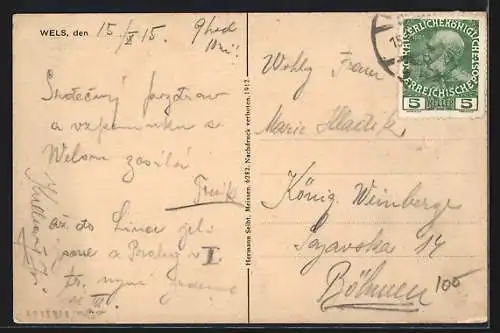 WELS, den 15/X 15. 9 hod
Srdečný pozdrav
a vzpomínku s
Welsu zasílá
až do Lince jeli
jsme z Prahy v II
tř. nyní jedeme
ve III.
Hermann Seibt, Meissen. 6282. Nachdruck verboten. 1912.
KAISERLICHE KÖNIGLICHE
ÖSTERREICHISCHE POST
5 HELLER 5
15
Wohlg Frau
Marie
König. Weinberge
Sazavska 14
Böhmen
100